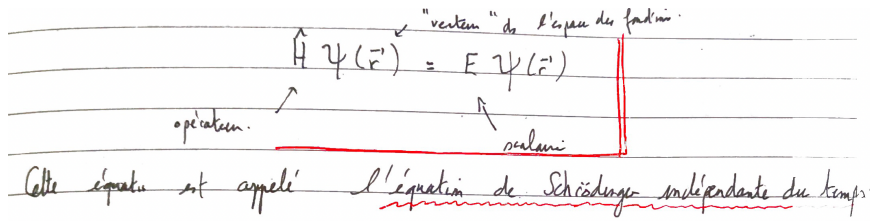 "vecteur" ds l'espace des fonctions.
Ĥ Ψ(r⃗) = E Ψ(r⃗)
opérateur.
scalaire
Cette équation est appelé l'équation de Schrödinger indépendante du temps